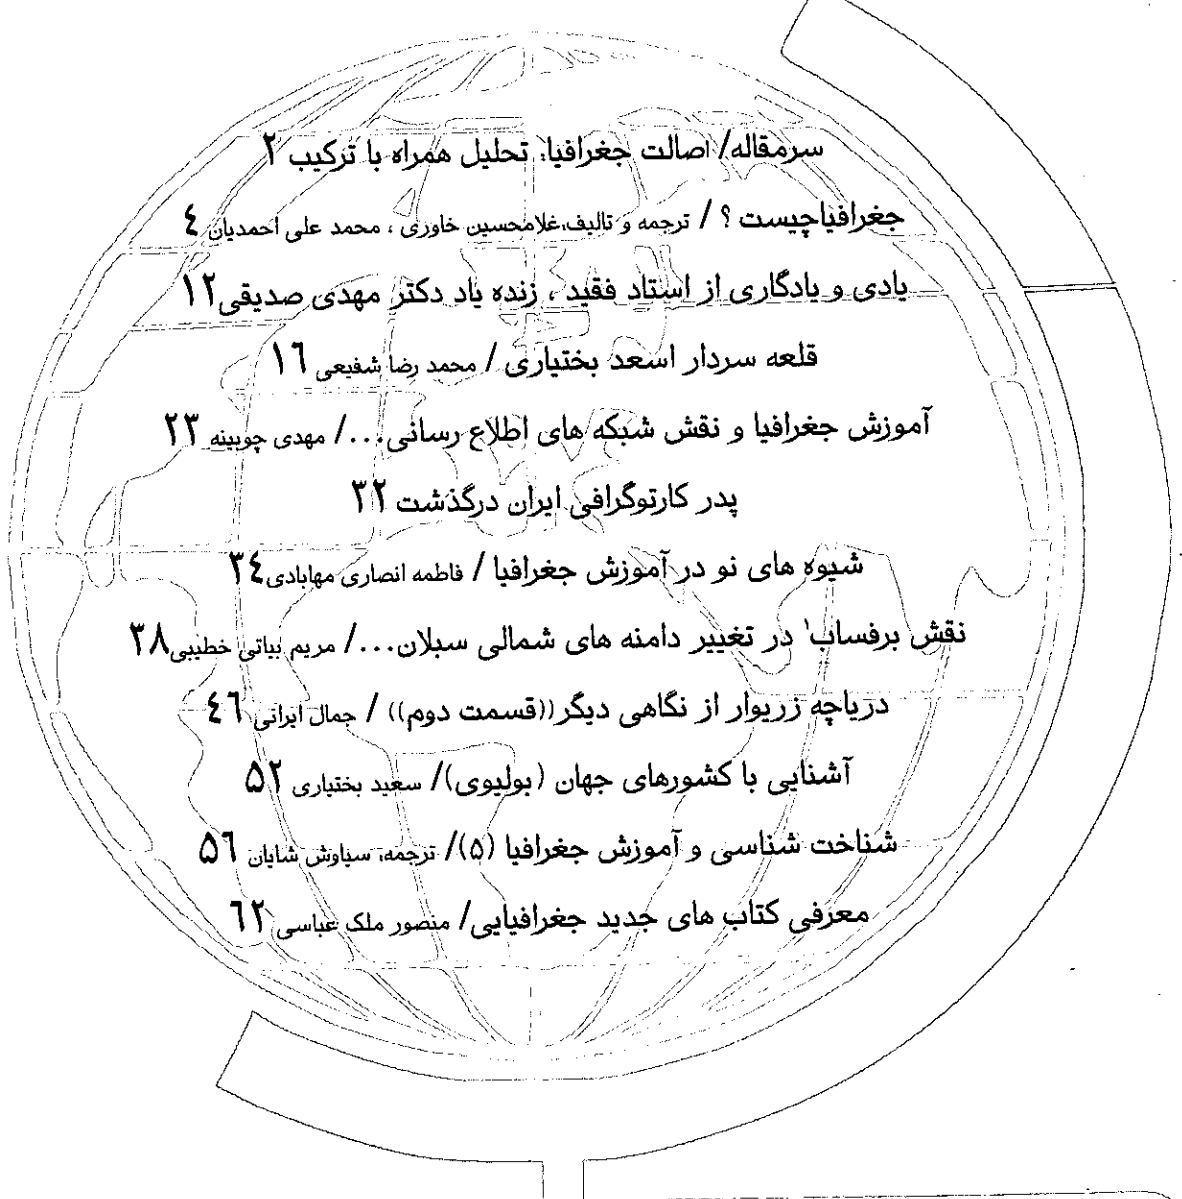 سرمقاله/ اصالت جغرافیا: تحلیل همراه با ترکیب ۲
جغرافیاچیست ؟ / ترجمه و تالیف:غلامحسین خاوری ، محمد علی احمدیان ٤
یادی و یادگاری از استاد فقید ، زنده یاد دکتر مهدی صدیقی ۱۲
قلعه سردار اسعد بختیاری / محمد رضا شفیعی ۱٦
آموزش جغرافیا و نقش شبکه های اطلاع رسانی.../ مهدی چوبینه ۲۳
پدر کارتوگرافی ایران درگذشت ۳۲
شیوه های نو در آموزش جغرافیا / فاطمه انصاری مهابادی ۳٤
نقش برفساب' در تغییر دامنه های شمالی سبلان.../ مریم بیاتی خطیبی ۳۸
دریاچه زریوار از نگاهی دیگر((قسمت دوم)) / جمال ایرانی ٤٦
آشنایی با کشورهای جهان (بولیوی)/ سعید بختیاری ۵۲
شناخت شناسی و آموزش جغرافیا (۵)/ ترجمه: سیاوش شایان ۵٦
معرفی کتاب های جدید جغرافیایی/ منصور ملک عباسی ٦۲